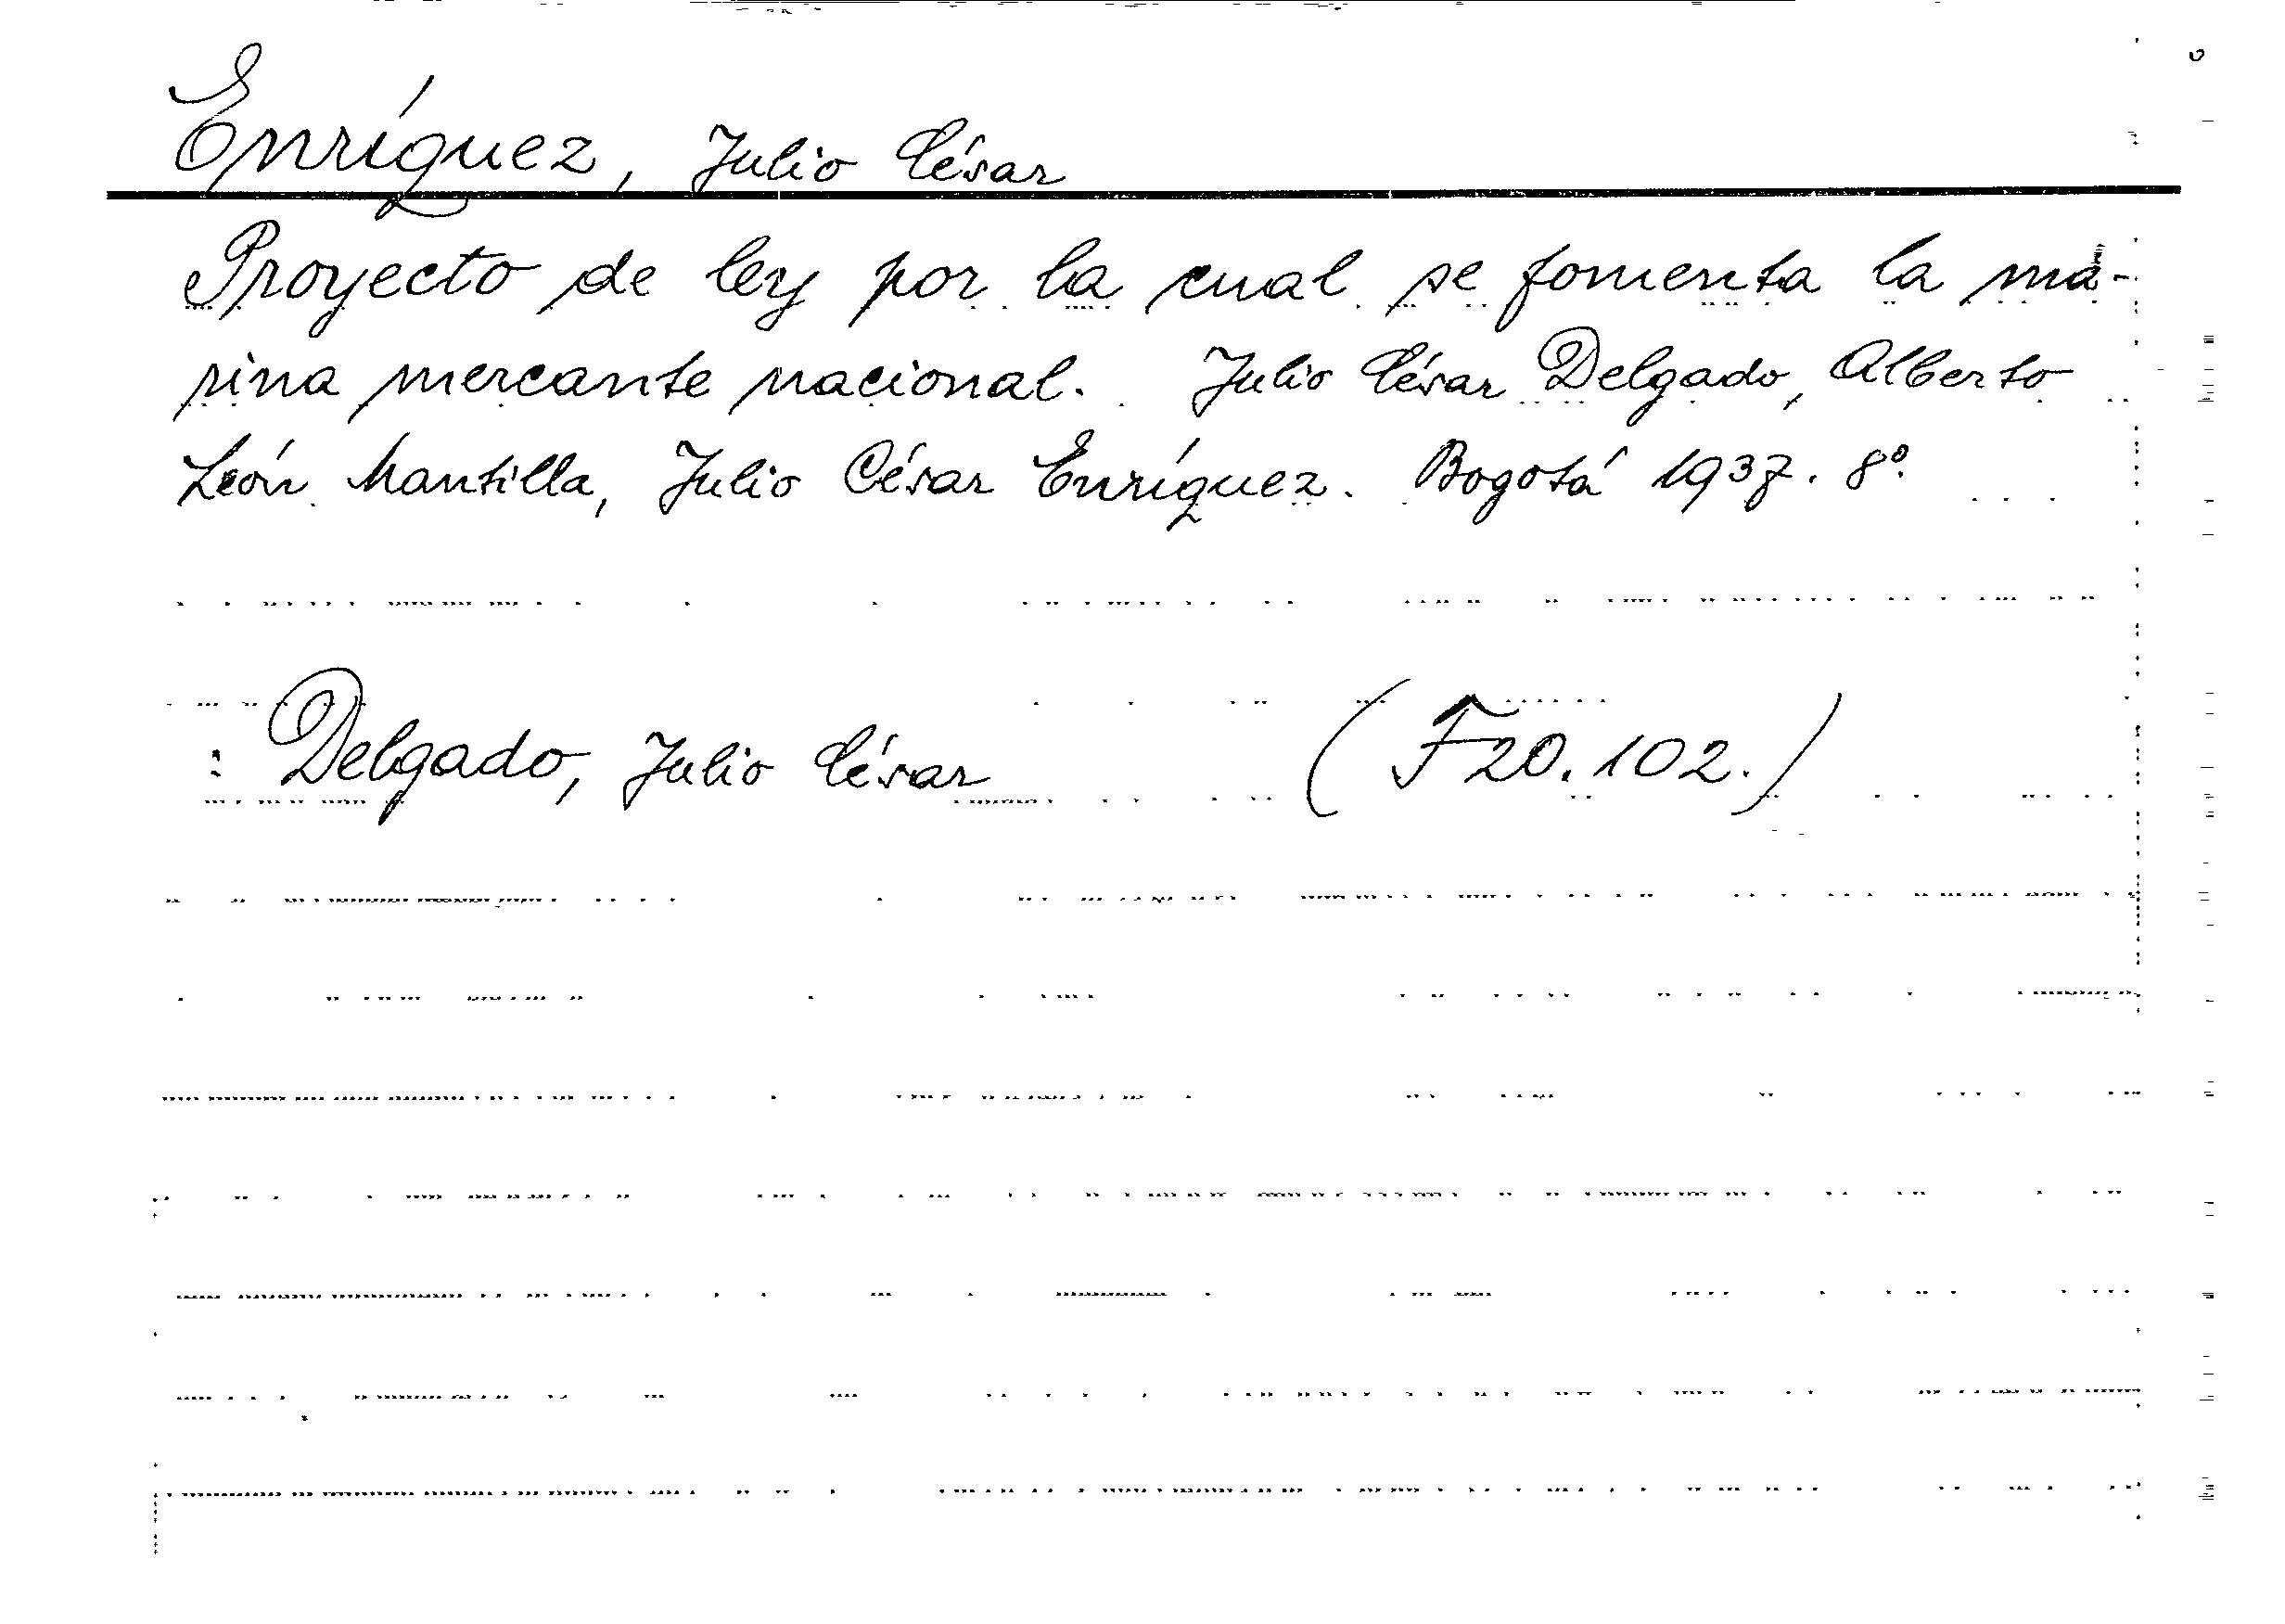 Enríquez, Julio César
Proyecto de ley por la cual se fomenta la ma-
rina mercante nacional. Julio César Delgado, Alberto
León Mantilla, Julio César Enríquez. Bogotá 1937. 8º.
: Delgado, Julio César (F20.102.)